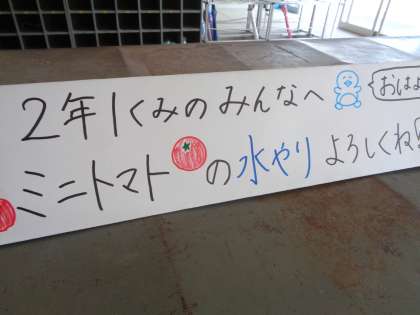 2年1くみのみんなへ
おはよ
ミニトマトの水やりよろしくね!